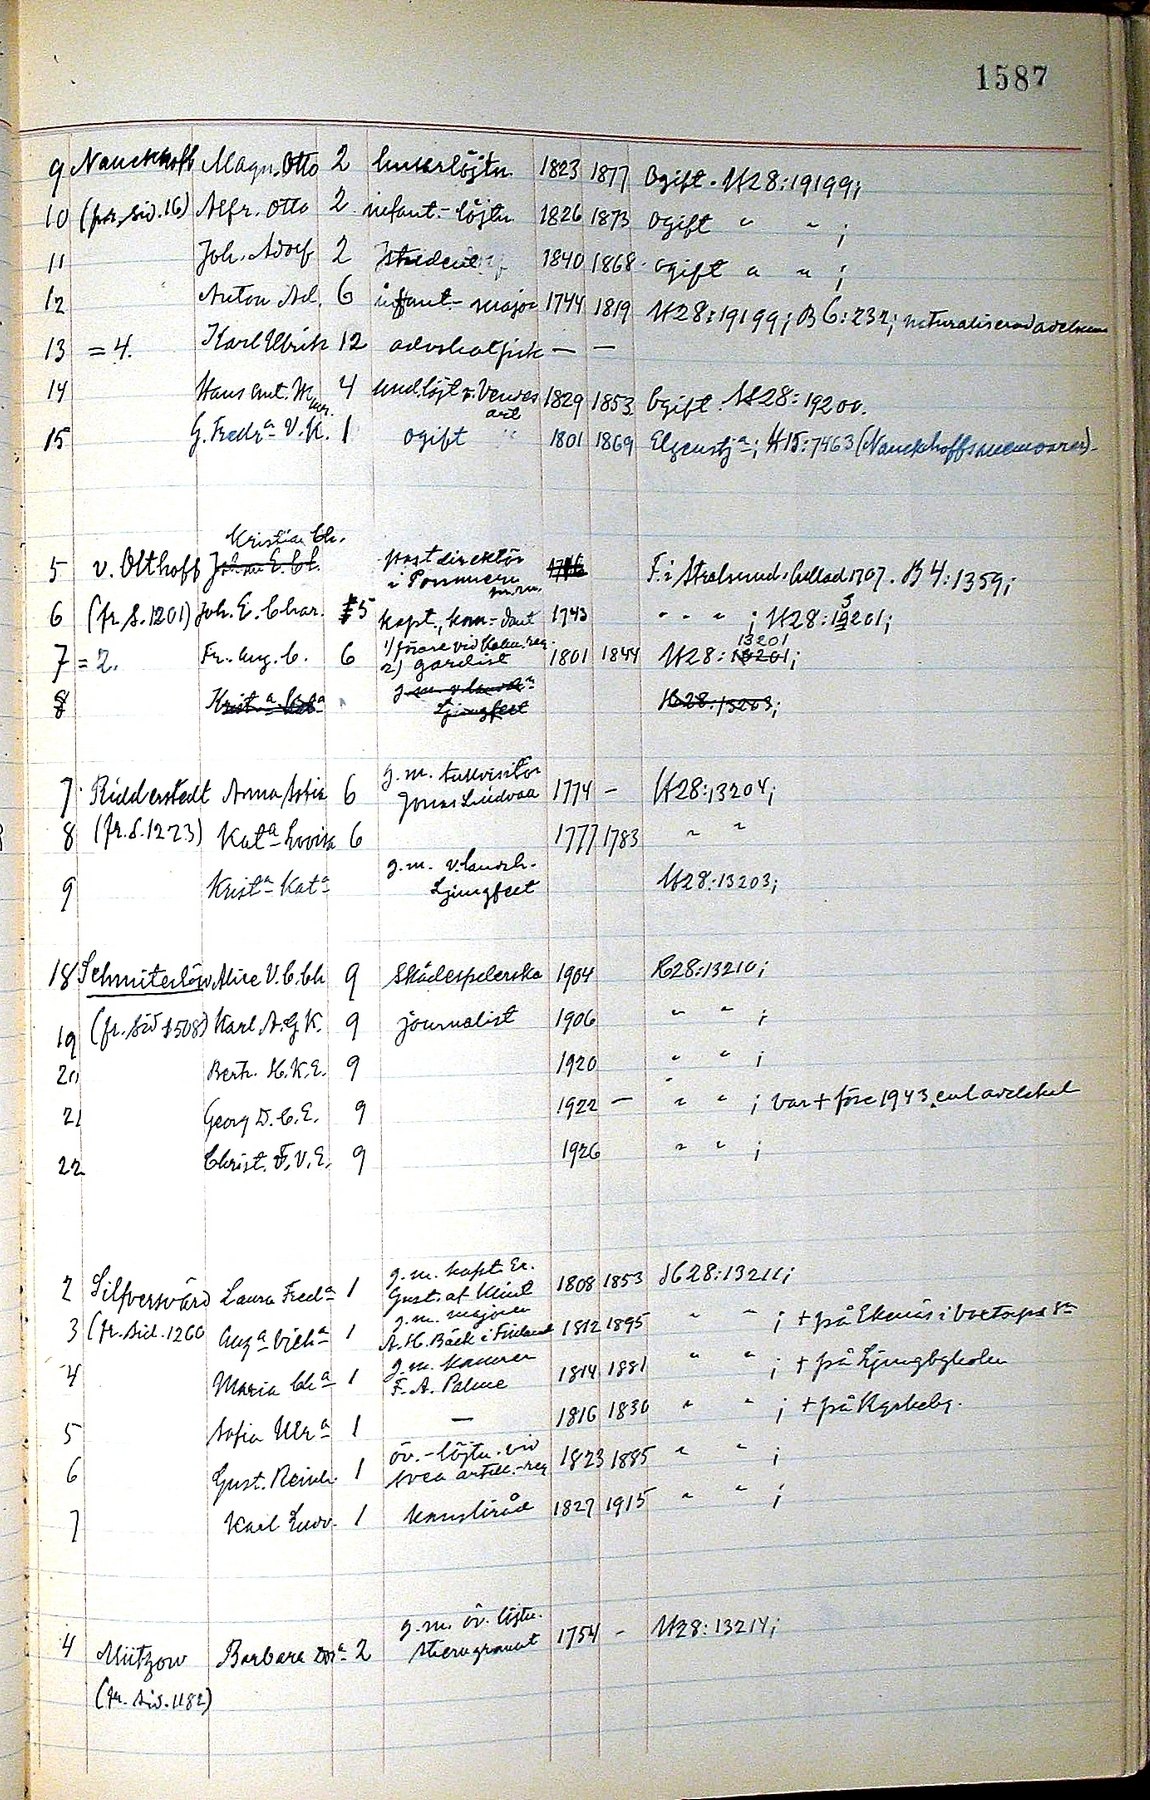 1587
9 Nauckhoff Magn. Otto 2 1823 1877 Ogift. H28:19199;
10 (fr. sid. 16) Alfr. Otto 2 infant.-löjtn 1826 1873 Ogift " " ;
11 Joh. Adolf 2 1840 1868 Ogift " " ;
12 Anton Ad. 6 infant.-major 1744 1819 H28:19199; B6:232; naturaliserad
13 = 4. Karl Ulrik 12 — —
14 Hans Ant. M 4 und.löjt v. Vendes art 1829 1853 Ogift. H28:19200.
15 G. Fredrᵃ V. K. 1 ogift " 1801 1869 H15:7463 (Nauckhoffs memoarer)
Kristian Ch.
5 v. Olthoff postdirektör i Pommern F. i Stralsund. 1707. B4:1359;
6 (fr. S. 1201) Joh. E. Char. 5 kapt., kom-dant 1743 " " " ; H28:13201;
7 = 2. Fr. Aug. C. 6 1) förare vid Kalm. reg. 2) gardist 1801 1844 H28: 13201;
8 Kristᵃ Katᵃ g. m. v. landsh Ljungfelt H28:13203;
7 Ridderstedt Anna Sofia 6 g. m. tullvisitor Jonas 1774 — H28:13204;
8 (fr. S. 1223) Katᵃ Lovisa 6 1777 1783 " "
9 Kristᵃ Katᵃ g. m. v. landsh. Ljungfelt H28:13203;
18 Schmiterlöw Alice V. C. Ch 9 Skådespelerska 1904 H28:13210;
19 (fr. sid 1508) Karl A. G. K. 9 journalist 1906 " " ;
20 Bertr. H. K. E. 9 1920 " " ;
21 Georg D. C. E. 9 1922 — " " ; var + före 1943 enl adelskal
22 Christ. F. V. E. 9 1926 " " ;
2 Silfversvärd Laura Fredᵃ 1 g. m. kapt. Er. Gust. af Klint 1808 1853 H28:13211;
3 (fr. sid. 1260 Augᵃ Vilhᵃ 1 g. m. majoren A. H. Bäck i Finland 1812 1895 " " ; + på Ekenäs i
4 Maria Chᵃ 1 g. m. kamrer F. A. Palme 1814 1881 " " ; + på Ljungbyholm
5 Sofia Ulrᵃ 1 — 1816 1830 " " ; + på Kyrkeby.
6 Gust. Reinh. 1 öv.-löjtn. vid Svea artill.-reg 1823 1885 " " ;
7 Karl Ludv. 1 kansliråd 1827 1915 " " ;
4 Mützow Barbara Dorᵃ 2 g. m. öv. löjtn. Stierngranat 1754 — H28:13214;
(fr. sid. 1182)